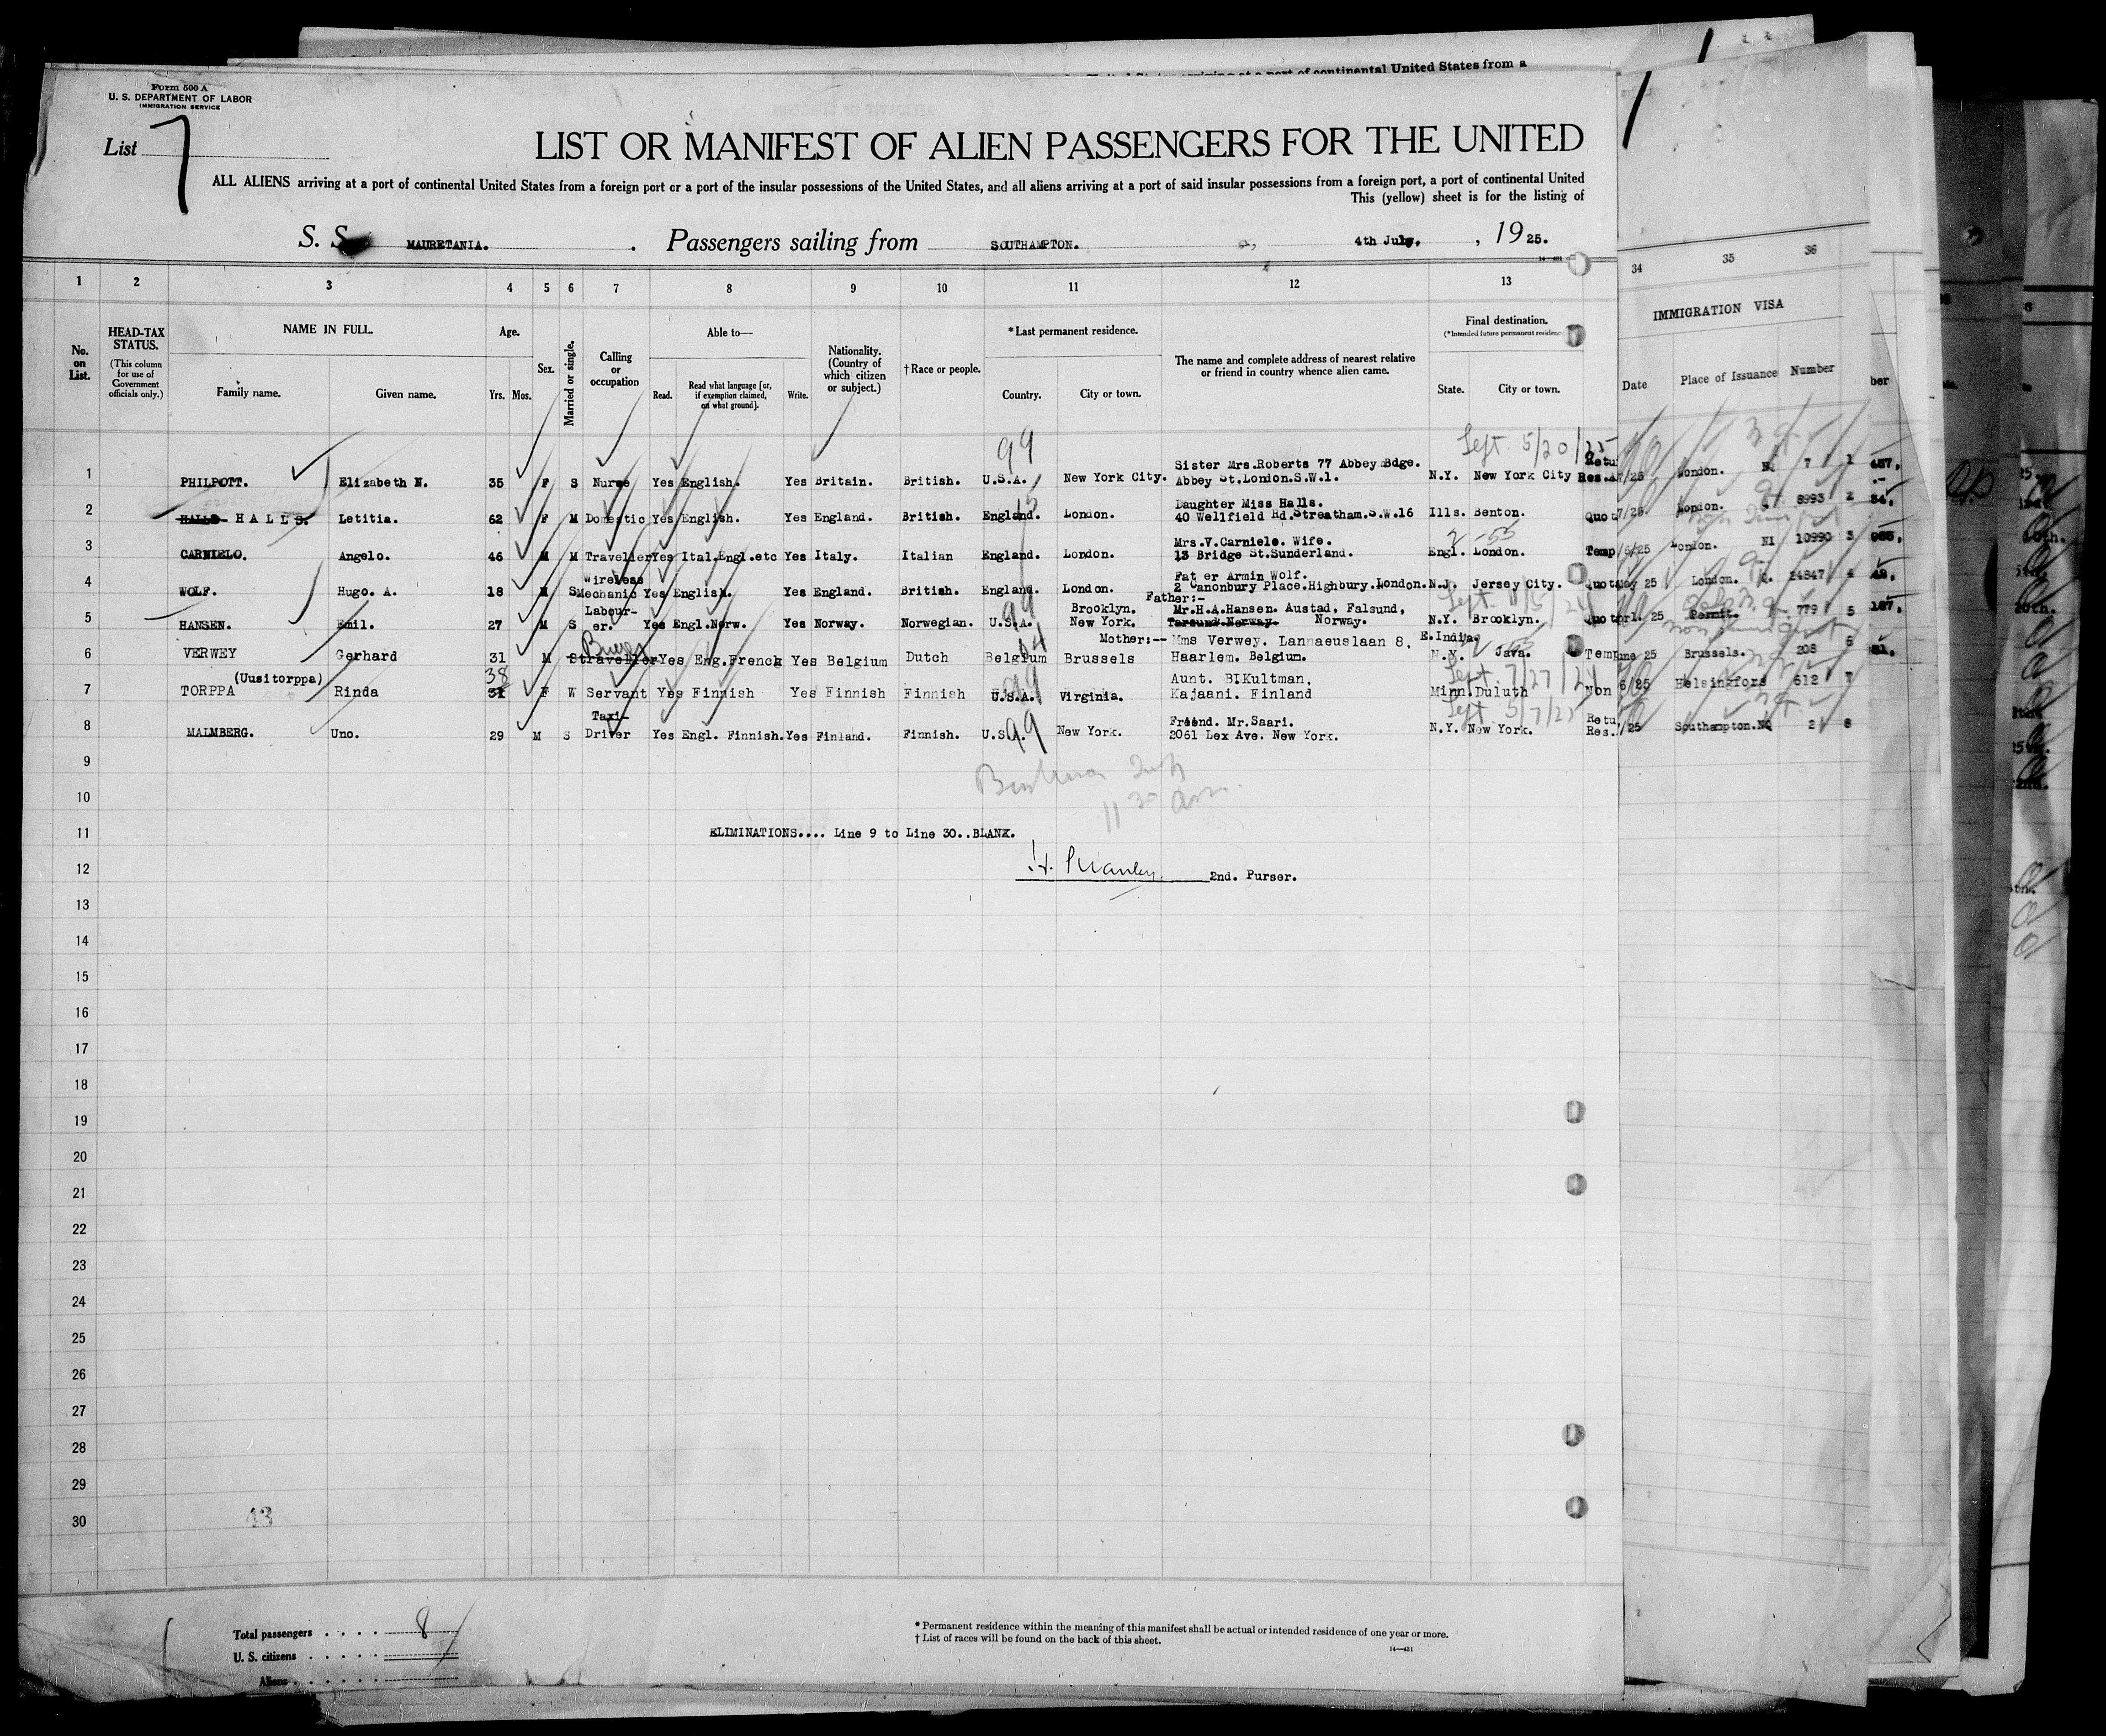 Form 500 A
U. S. DEPARTMENT OF LABOR
IMMIGRATION SERVICE
continental United States from a
List 7
LIST OR MANIFEST OF ALIEN PASSENGERS FOR THE UNITED
ALL ALIENS arriving at a port of continental United States from a foreign port or a port of the insular possessions of the United States, and all aliens arriving at a port of said insular possessions from a foreign port, a port of continental United
This (yellow) sheet is for the listing of
S. S. MAURETANIA. Passengers sailing from SOUTHAMPTON. 4th July, , 1925.
1 2 3 4 5 6 7 8 9 10 11 12 13 34 35 36
No. on List.
HEAD-TAX STATUS.
(This column for use of Government officials only.)
NAME IN FULL.
Family name. Given name.
Age.
Yrs. Mos.
Sex.
Married or single.
Calling or occupation
Able to—
Read. Read what language [or, if exemption claimed, on what ground]. Write.
Nationality. (Country of which citizen or subject.)
† Race or people.
* Last permanent residence.
Country. City or town.
The name and complete address of nearest relative or friend in country whence alien came.
Final destination.
(*Intended future permanent residence
State. City or town.
IMMIGRATION VISA
Date Place of Issuance Number
ber
99 Sept 5/20/25
1 PHILPOTT. Elizabeth N. 35 F S Nurse Yes English. Yes Britain. British. U.S.A. New York City. Sister Mrs.Roberts 77 Abbey Bdge. Abbey St.London.S.W.1. N.Y. New York City Retu Res.A 7/25 London. NQ 7 1 457,
2 HALLS HALLS. Letitia. 62 F M Domestic Yes English. Yes England. British. England. London. Daughter Miss Halls. 40 Wellfield Rd.Streatham.S.W.16 Ills. Benton. Quot 7/25 London. 8993 2 34,
3 CARNIELO. Angelo. 46 M M Traveller Yes Ital.Engl.etc Yes Italy. Italian England. London. Mrs.V.Carniele. Wife. 13 Bridge St.Sunderland. Engl. London. Temp /6/25 London. NI 10990 3
4 WOLF. Hugo. A. 18 M S wireless Mechanic Yes English. Yes England. British. England. London. Fat er Armin Wolf. 2 Canonbury Place.Highbury.London. N.J. Jersey City. Quot May 25 London. Q. 24847 4
5 HANSEN. Emil. 27 M S Labour- er. Yes Engl.Norw. Yes Norway. Norwegian. U.S.A. Brooklyn. New York. Father:- Mr.H.A.Hansen. Austad, Falsund, Norway. N.Y. Brooklyn. Quot prl. 25 Permit. 779 5 167,
6 VERWEY Gerhard 31 M S traveller Buyer Yes Eng.French Yes Belgium Dutch Belgium Brussels Mother:-- Mms Verwey. Lannaeuslaan 8, Haarlem. Belgium. E.India N.Y. Java. Tem une 25 Brussels. 208 6
7 TORPPA (Uusitorppa) Rinda 31 38 F W Servant Yes Finnish Yes Finnish Finnish U.S.A. Virginia. Aunt. B.Kultman, Kajaani. Finland Minn Duluth Sept. 7/27/24 Non 6/25 Helsingfors 612 7
8 MALMBERG. Uno. 29 M S Taxi- Driver Yes Engl. Finnish. Yes Finland. Finnish. U.S.A. 99 New York. Friend. Mr.Saari. 2061 Lex Ave. New York. N.Y. New York. Sept 5/7/25 Retu Res. /25 Southampton. NQ 2 8
9
10
11 ELIMINATIONS.... Line 9 to Line 30..BLANK.
12 2nd. Purser.
13
14
15
16
17
18
19
20
21
22
23
24
25
26
27
28
29
30
Total passengers . . . . 8
U. S. citizens . . . . .
Aliens . . . . . .
* Permanent residence within the meaning of this manifest shall be actual or intended residence of one year or more.
† List of races will be found on the back of this sheet.
14—431